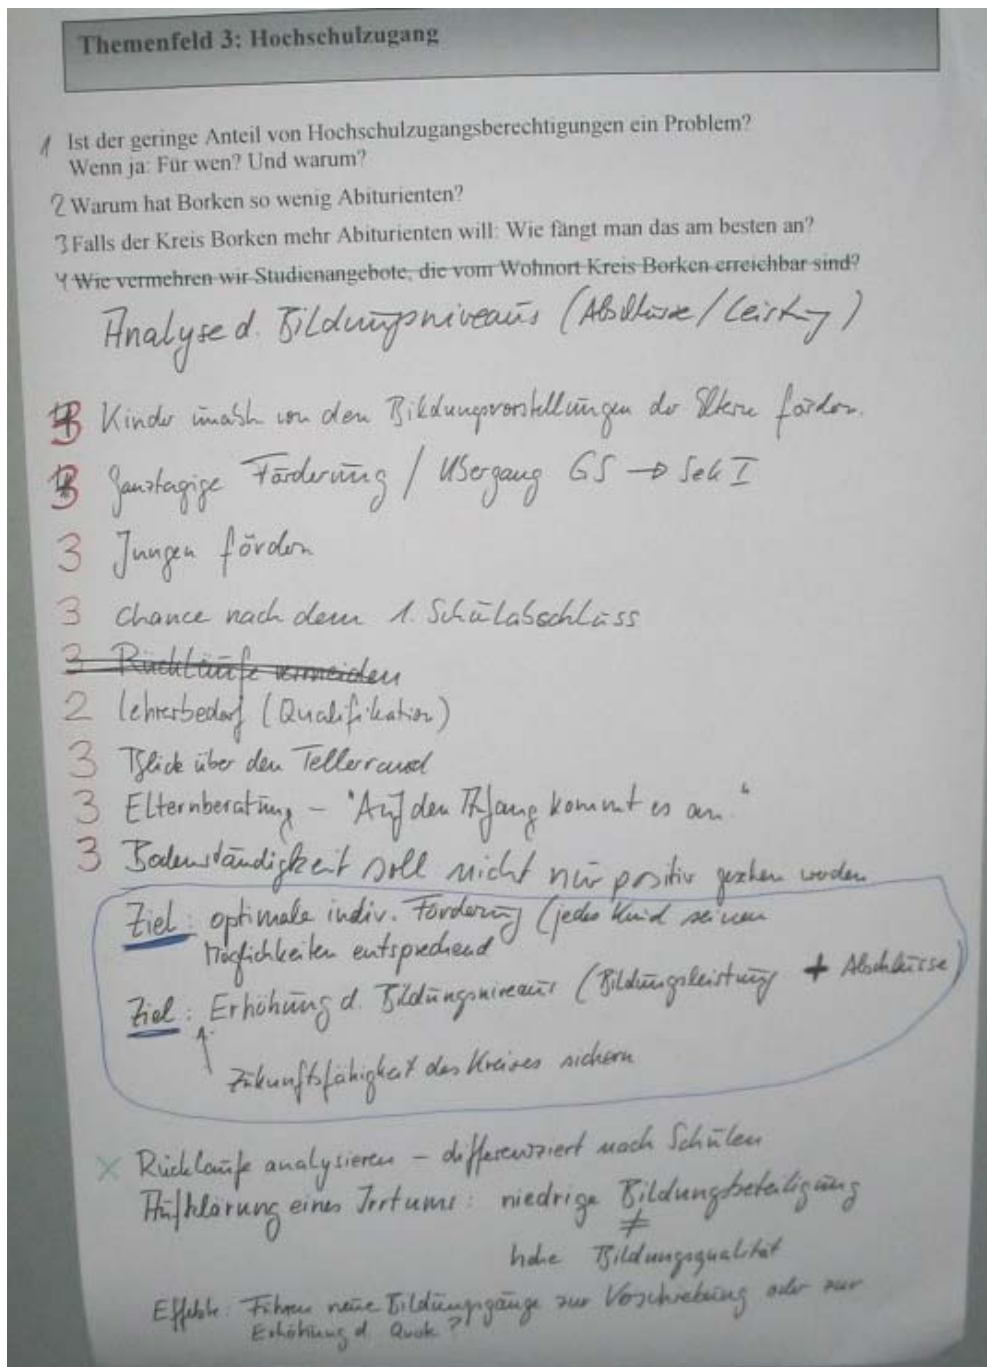 Themenfeld 3: Hochschulzugang
1 Ist der geringe Anteil von Hochschulzugangsberechtigungen ein Problem?
Wenn ja: Für wen? Und warum?
2 Warum hat Borken so wenig Abiturienten?
3 Falls der Kreis Borken mehr Abiturienten will: Wie fängt man das am besten an?
4 Wie vermehren wir Studienangebote, die vom Wohnort Kreis Borken erreichbar sind?
Analyse d. Bildungsniveaus (Abschlüsse / Leistung)
3 Kinder von den Bildungsvorstellungen der Eltern fördern.
3 Ganztagige Förderung / Übergang GS → Sek I
3 Jungen fördern
3 Chance nach dem 1. Schulabschluss
3 Rückläufe vermeiden
2 Lehrerbedarf (Qualifikation)
3 Blick über den Tellerrand
3 Elternberatung – "Auf den Anfang kommt es an"
3 Bodenständigkeit soll nicht nur positiv gesehen werden
Ziel: optimale indiv. Förderung (jedes Kind seinen
Möglichkeiten entsprechend
Ziel: Erhöhung d. Bildungsniveaus (Bildungsleistung + Abschlüsse)
↑
Zukunftsfähigkeit des Kreises sichern
X Rückläufe analysieren – differenziert nach Schulen
Aufklärung eines Irrtums: niedrige Bildungsbeteiligung
≠
hohe Bildungsqualität
Effekte: Führen neue Bildungsgänge zur Verschiebung oder zur
Erhöhung d. Quote?